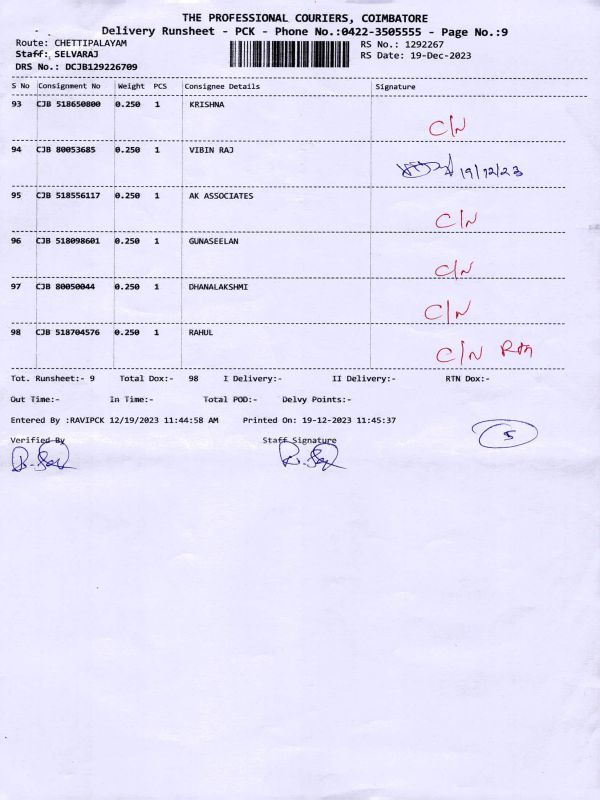 THE PROFESSIONAL COURIERS, COIMBATORE
Delivery Runsheet - PCK - Phone No.:0422-3505555 - Page No.:9
Route: CHETTIPALAYAM RS No.: 1292267
Staff: SELVARAJ RS Date: 19-Dec-2023
DRS No.: DCJB129226709
S No Consignment No Weight PCS Consignee Details Signature
93 CJB 518650800 0.250 1 KRISHNA
C/N
94 CJB 80053685 0.250 1 VIBIN RAJ
19/12/23
95 CJB 518556117 0.250 1 AK ASSOCIATES
C/N
96 CJB 518098601 0.250 1 GUNASEELAN
C/N
97 CJB 80050044 0.250 1 DHANALAKSHMI
C/N
98 CJB 518704576 0.250 1 RAHUL
C/N Rtn
Tot. Runsheet:- 9 Total Dox:- 98 I Delivery:- II Delivery:- RTN Dox:-
Out Time:- In Time:- Total POD:- Delvy Points:-
Entered By :RAVIPCK 12/19/2023 11:44:58 AM Printed On: 19-12-2023 11:45:37
5
Verified By Staff Signature